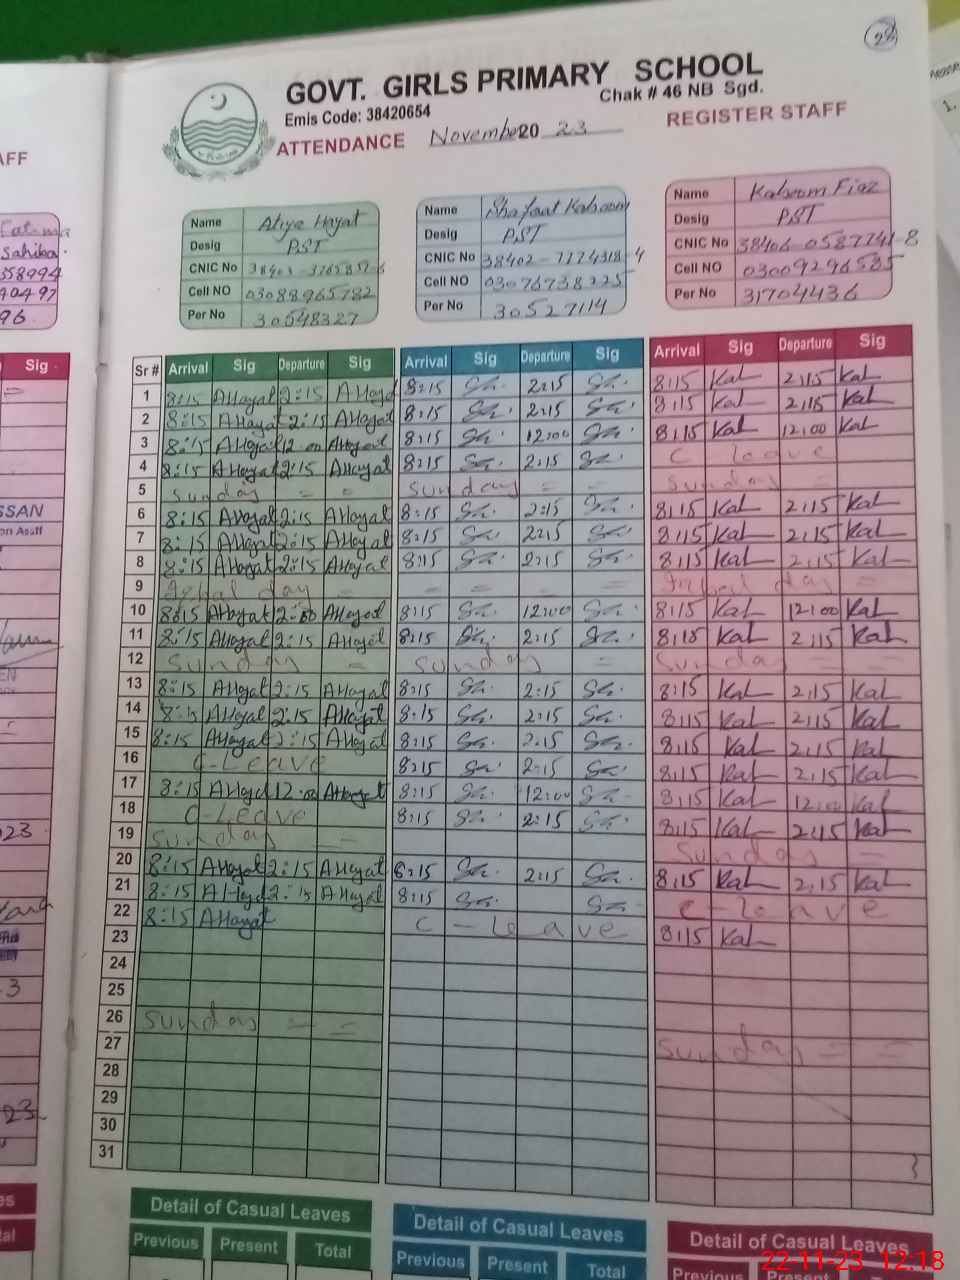 28
GOVT. GIRLS PRIMARY SCHOOL
Chak # 46 NB Sgd.
Emis Code: 38420654
ATTENDANCE November 20 23 REGISTER STAFF
Name Atiya Hayat
Desig PST
CNIC No
Cell NO 03088965782
Per No 30548327
Name Shafaat Kalsoom
Desig PST
CNIC No 38402-7774318-4
Cell NO 03076738225
Per No 30527114
Name Kalsoom Fiaz
Desig PST
CNIC No 38406-0587741-8
Cell NO 03009296585
Per No 31704436
Sr # Arrival Sig Departure Sig Arrival Sig Departure Sig Arrival Sig Departure Sig
1 8:15 AHayat 2:15 AHayat 8:15 Sh. 2:15 Sh. 8:15 Kal 2:15 Kal
2 8:15 AHayat 2:15 AHayat 8:15 Sh. 2:15 Sh. 8:15 Kal 2:15 Kal
3 8:15 AHayat 12:00 AHayat 8:15 Sh. 12:00 Sh. 8:15 Kal 12:00 Kal
4 8:15 AHayat 2:15 AHayat 8:15 Sh. 2:15 Sh. C leave
5 Sunday = = Sunday = = Sunday = =
6 8:15 AHayat 2:15 AHayat 8:15 Sh. 2:15 Sh. 8:15 Kal 2:15 Kal
7 8:15 AHayat 2:15 AHayat 8:15 Sh. 2:15 Sh. 8:15 Kal 2:15 Kal
8 8:15 AHayat 2:15 AHayat 8:15 Sh. 2:15 Sh. 8:15 Kal 2:15 Kal
9 Iqbal day = = = = = Iqbal day =
10 8:15 AHayat 12:00 AHayat 8:15 Sh. 12:00 Sh. 8:15 Kal 12:00 Kal
11 8:15 AHayat 2:15 AHayat 8:15 Sh. 2:15 Sh. 8:15 Kal 2:15 Kal
12 Sunday = Sunday = Sunday = =
13 8:15 AHayat 2:15 AHayat 8:15 Sh. 2:15 Sh. 8:15 Kal 2:15 Kal
14 8:15 AHayat 2:15 AHayat 8:15 Sh. 2:15 Sh. 8:15 Kal 2:15 Kal
15 8:15 AHayat 2:15 AHayat 8:15 Sh. 2:15 Sh. 8:15 Kal 2:15 Kal
16 C-Leave 8:15 Sh. 2:15 Sh. 8:15 Kal 2:15 Kal
17 8:15 AHayat 12:00 AHayat 8:15 Sh. 12:00 Sh. 8:15 Kal 12:00 Kal
18 C-Leave 8:15 Sh. 2:15 Sh. 8:15 Kal 2:15 Kal
19 Sunday = Sunday =
20 8:15 AHayat 2:15 AHayat 8:15 Sh. 2:15 Sh. 8:15 Kal 2:15 Kal
21 8:15 AHayat 2:15 AHayat 8:15 Sh. Sh. C-leave
22 8:15 AHayat C-leave 8:15 Kal
23
24
25
26 Sunday = = Sunday = =
27
28
29
30
31
Detail of Casual Leaves Detail of Casual Leaves Detail of Casual Leaves
Previous Present Total Previous Present Total Previous Present
22-11-23 12:18